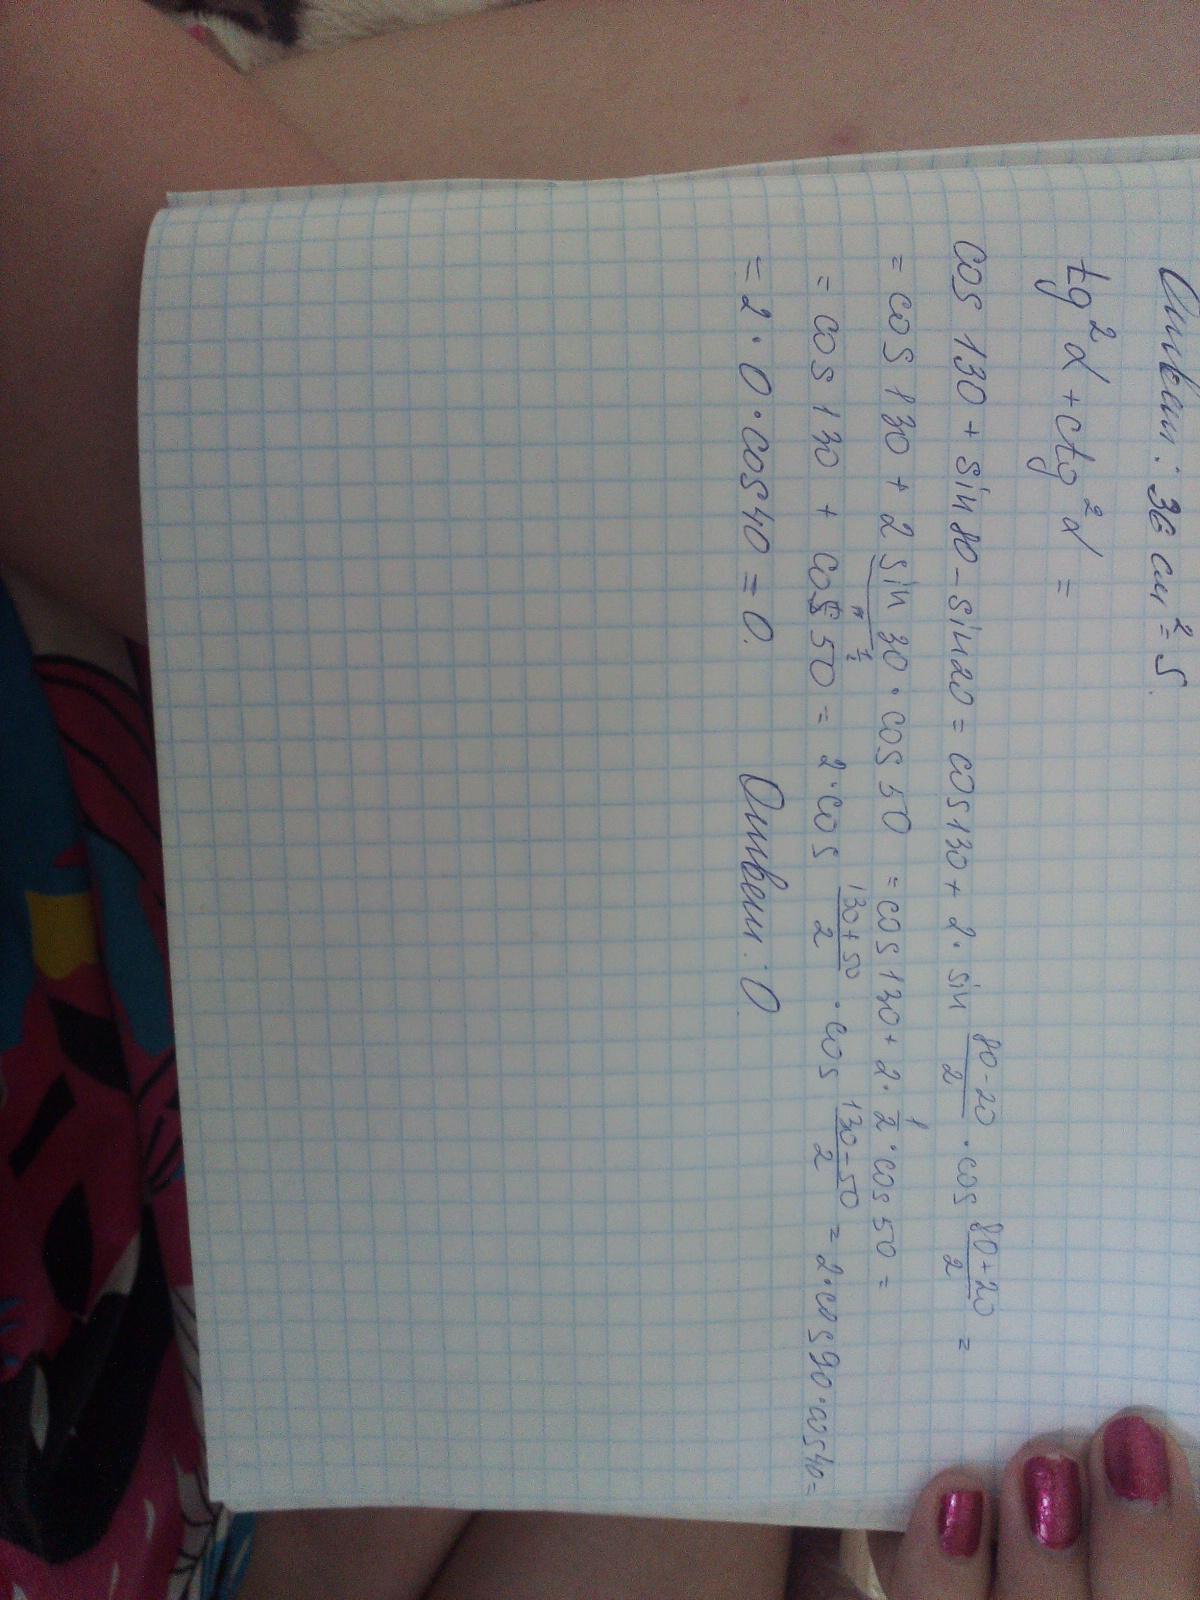 Ответ: 36 см² = S.
tg²α + ctg²α =
cos 130 + sin 80 - sin 20 = cos 130 + 2 · sin (80-20)/2 · cos (80+20)/2 =
= cos 130 + 2 sin 30 · cos 50 = cos 130 + 2 · 1/2 · cos 50 =
" 1/2
= cos 130 + cos 50 = 2 · cos (130+50)/2 · cos (130-50)/2 = 2 · cos 90 · cos 40 =
= 2 · 0 · cos 40 = 0. Ответ: 0.